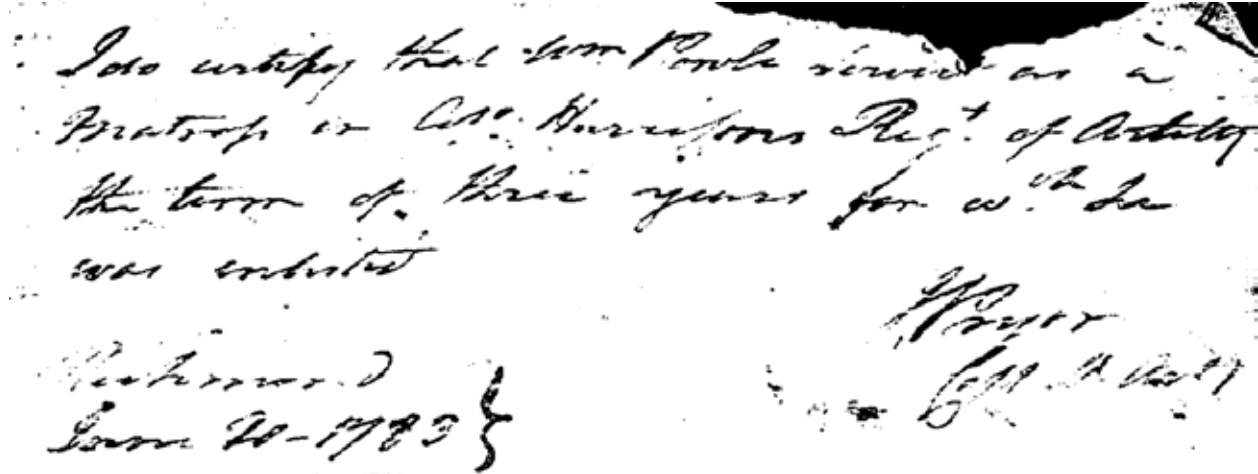 I do certify that Wm Powle served as a
Matross in Colo. Harrisons Regt. of Artillery
the term of three years for wch. he
was enlisted
Pryor
Capt. Arty
Richmond
June 20 - 1783